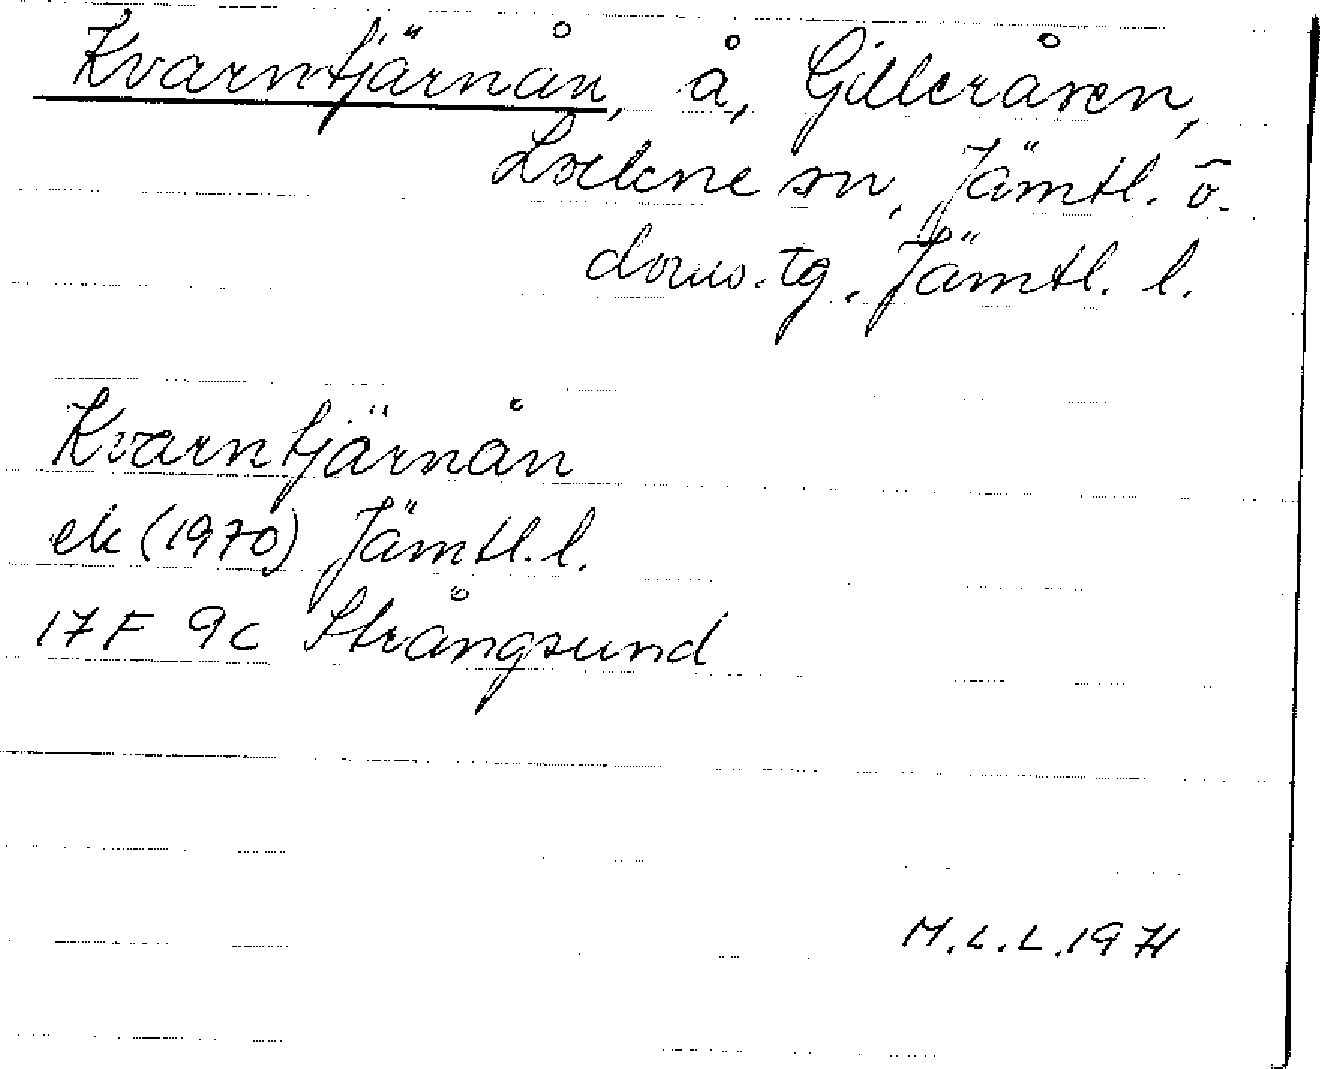 Kvarntjärnån, å, Gilleråsen,
Lockne sn, Jämtl. ö.
doms.tg. Jämtl. l.
Kvarntjärnån
ek (1970) Jämtl. l.
17F 9c Strångsund
M.L.L. 1971